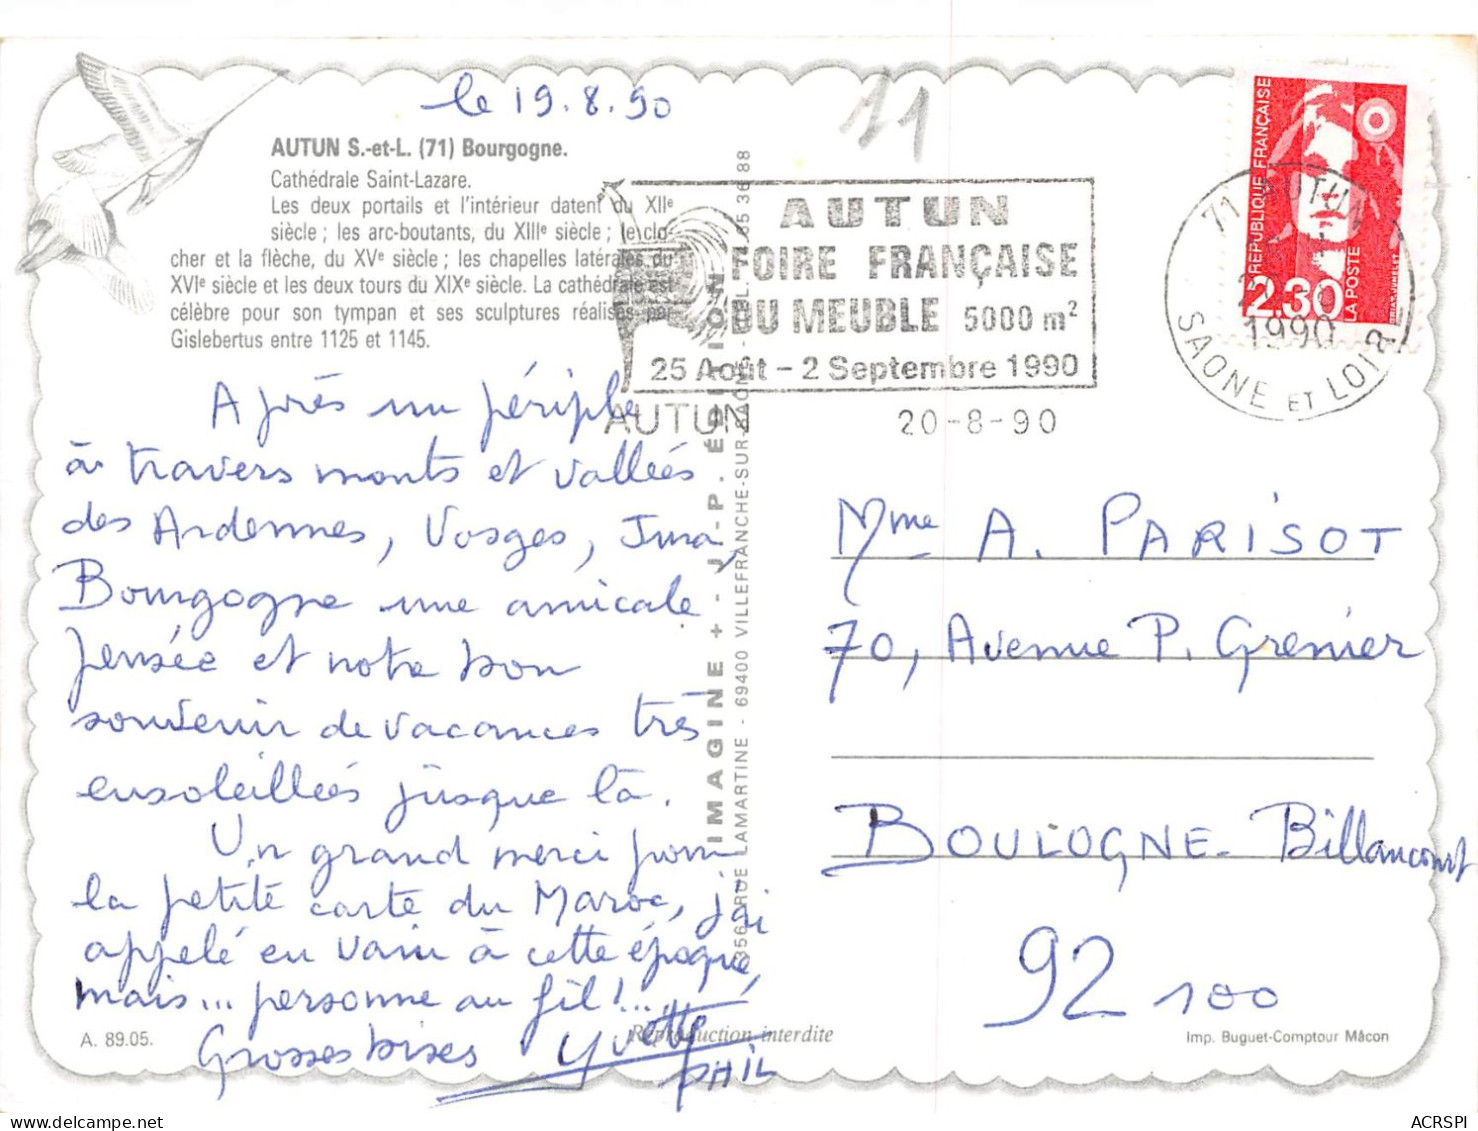 le 19.8.90
11
AUTUN S.-et-L. (71) Bourgogne.
Cathédrale Saint-Lazare.
Les deux portails et l'intérieur datent du XIIe
siècle ; les arc-boutants, du XIIIe siècle ; le clo-
cher et la flèche, du XVe siècle ; les chapelles latérales, du
XVIe siècle et les deux tours du XIXe siècle. La cathédrale est
célèbre pour son tympan et ses sculptures réalisés par
Gislebertus entre 1125 et 1145.
AUTUN
FOIRE FRANÇAISE
DU MEUBLE 5000 m²
25 Août - 2 Septembre 1990
AUTUN 20-8-90
REPUBLIQUE FRANÇAISE
2,30
LA POSTE
BRIAT. JUMELET
71 AUTUN
1990
SAONE ET LOIRE
Après un périple
à travers monts et vallées
des Ardennes, Vosges, Jura,
Bourgogne une amicale
pensée et notre bon
souvenir de vacances très
ensoleillées jusque là.
Un grand merci pour
la petite carte du Maroc, j'ai
appelé en vain à cette époque,
mais... personne au fil!...
Grosses bises Yvette
PHIL
IMAGINE + - J.-P. ÉDITION
356, RUE LAMARTINE - 69400 VILLEFRANCHE-SUR-SAONE - TEL. 74 65 36 88
Mme A. PARISOT
70, Avenue P. Grenier
BOULOGNE-Billancourt
92 100
A. 89.05.
Reproduction interdite
Imp. Buguet-Comptour Mâcon
ACRSPI